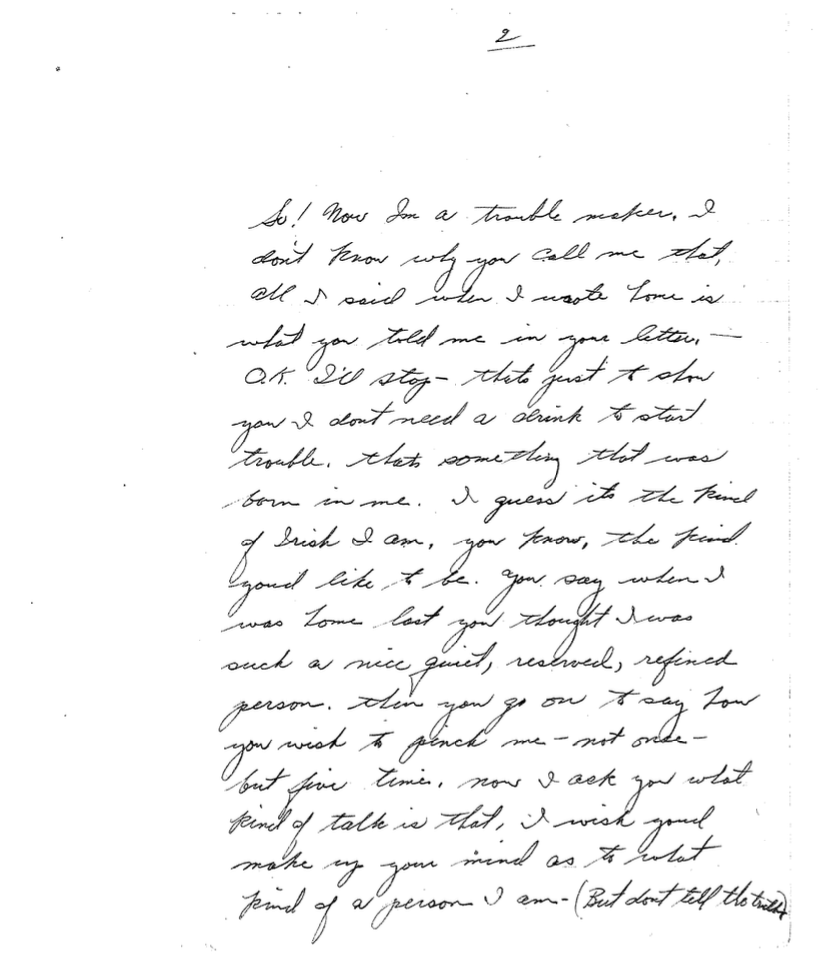 2
So! Now Im a trouble maker. I
don't know why you call me that,
all I said when I wrote home is
what you told me in your letter. —
O.K. I'll stop - thats just to show
you I dont need a drink to start
trouble. thats something that was
born in me. I guess its the kind
of Irish I am, you know, the kind
youd like to be. You say when I
was home last you thought I was
such a nice quiet, reserved, refined
person. then you go on to say how
you wish to pinch me - not once -
but five time. now I ask you what
kind of talk is that, I wish youd
make up your mind as to what
kind of a person I am - (But dont tell the truth)